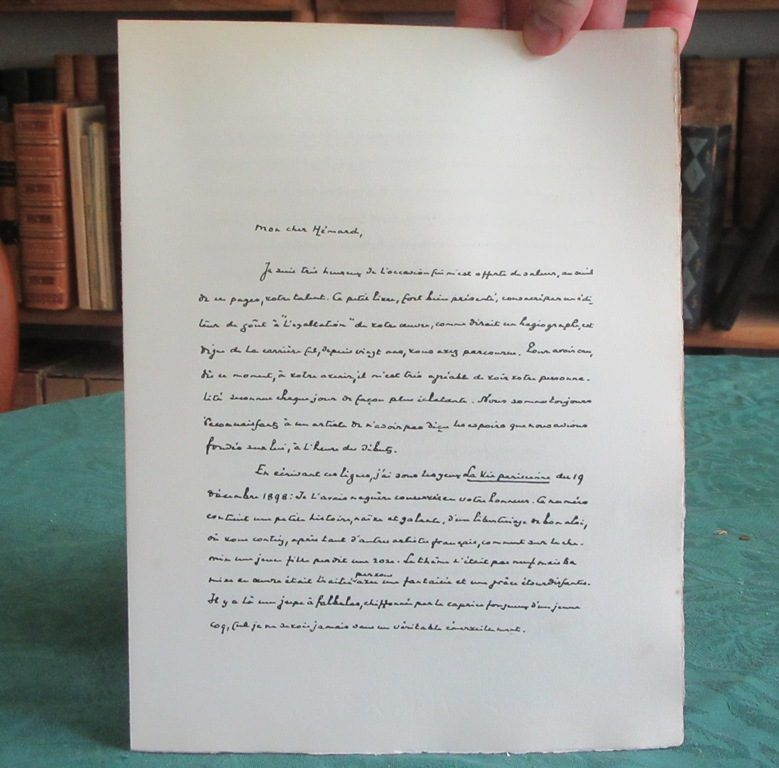 Mon cher Hémard,
Je suis très heureux de l'occasion qui m'est offerte de saluer, au seuil
de ces pages, votre talent. Ce petit livre, fort bien présenté, consacré par un édi-
teur de goût à "l'exaltation" de votre œuvre, comme dirait un hagiographe, est
digne de la carrière que, depuis vingt ans, vous avez parcourue. Pour avoir cru,
dès ce moment, à votre avenir, il m'est très agréable de voir votre personna-
lité reconnue chaque jour de façon plus éclatante. Nous sommes toujours
reconnaissants à un artiste de n'avoir pas déçu les espoirs que nous avions
fondés sur lui, à l'heure des débuts.
En écrivant ces lignes, j'ai sous les yeux La Vie parisienne du 19
Décembre 1898: Je l'avais naguère conservée en votre honneur. Ce numéro
contient une petite histoire, naïve et galante, d'un libertinage de bon aloi,
où vous contiez, après tant d'autres artistes français, comment sur le che-
min une jeune fille perdit une rose. Le thème n'était pas neuf mais la
mise en œuvre était traitée par vous avec une fantaisie et une grâce étourdissantes.
Il y a là une jupe à falbalas, chiffonnée par le caprice fougueux d'un jeune
coq, que je ne revois jamais sans un véritable émerveillement.